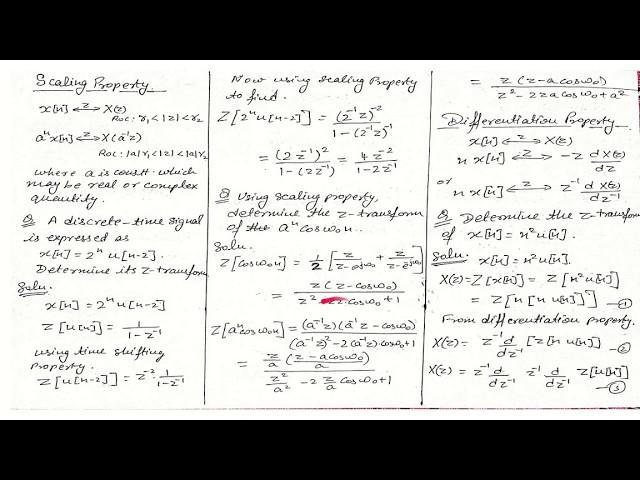 Scaling Property.
x[n] ⟷z X(z)
ROC: r₁<|z|<r₂
aⁿx[n] ⟷z X(a⁻¹z)
ROC: |a|r₁<|z|<|a|r₂
where a is constt. which
may be real or complex
quantity.
Q A discrete-time signal
is expressed as
x[n] = 2ⁿ u[n-2].
Determine its z-transform
Solu.
x[n] = 2ⁿ u[n-2]
Z[u[n]] = 1/(1-z⁻¹)
using time shifting
Property
Z[u[n-2]] = z⁻² · 1/(1-z⁻¹)
Now using scaling Property
to find.
Z[2ⁿu[n-2]] = (2⁻¹z)⁻²/(1-(2⁻¹z)⁻¹)
= (2z⁻¹)²/(1-(2z⁻¹)) = 4z⁻²/(1-2z⁻¹)
Q Using scaling property,
determine the z-transform
of the aⁿcosω₀n.
Solu.
Z[cosω₀n] = 1/2 [z/(z-e^{jω₀}) + z/(z-e^{-jω₀})]
= z(z-cosω₀)/(z²-2z cosω₀+1)
Z[aⁿcosω₀n] = (a⁻¹z)(a⁻¹z-cosω₀)/((a⁻¹z)²-2(a⁻¹z)·cosω₀+1)
= (z/a)(z-acosω₀/a)/(z²/a² - 2 z/a cosω₀+1)
= z(z-acosω₀)/(z²-2za cosω₀+a²)
Differentiation Property
x[n] ⟷z X(z)
n x[n] ⟷z -z dX(z)/dz
or
n x[n] ⟷z z⁻¹ dX(z)/dz⁻¹
Q Determine the z-transform
of x[n] = n²u[n].
Solu. x[n] = n²u[n].
X(z) = Z[x[n]] = Z[n²u[n]]
= Z[n[n u[n]]] - ①
From differentiation property.
X(z) = z⁻¹ d/dz⁻¹ [Z[n u[n]]] - ②
X(z) = z⁻¹ d/dz⁻¹ z⁻¹ d/dz⁻¹ Z[u[n]]
- ③